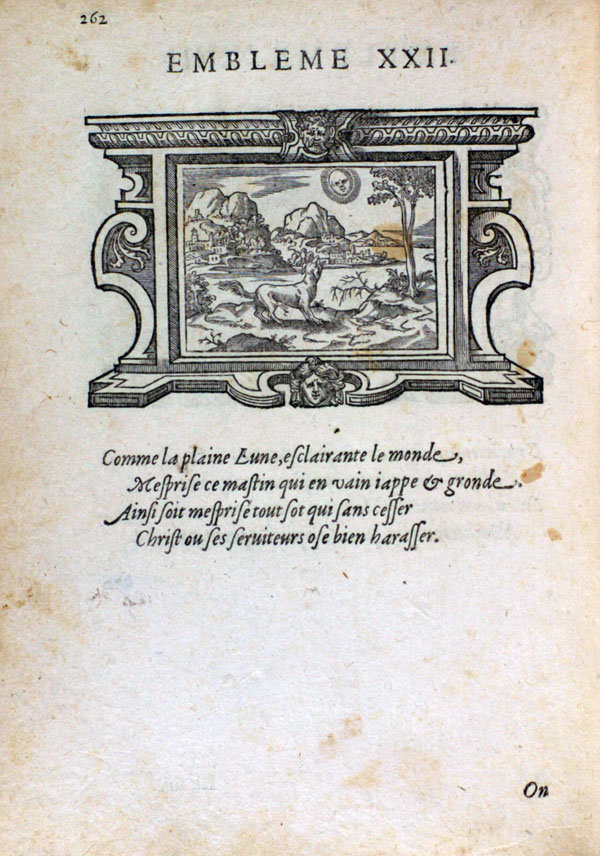 262
EMBLEME XXII.
Comme la plaine Lune, esclairante le monde,
Mesprise ce mastin qui en vain iappe & gronde.
Ainsi soit mesprise tout sot qui sans cesser
Christ ou ses seruiteurs ose bien harasser.
On